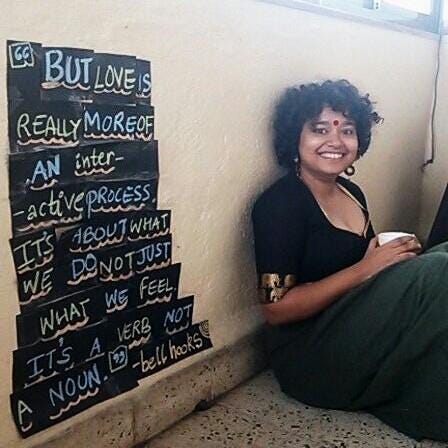 “BUT LOVE IS
REALLY MORE OF
AN inter-
-active PROCESS.
IT'S ABOUT WHAT
WE DO NOT JUST
WHAT WE FEEL.
IT'S A VERB NOT
A NOUN.” -bell hooks